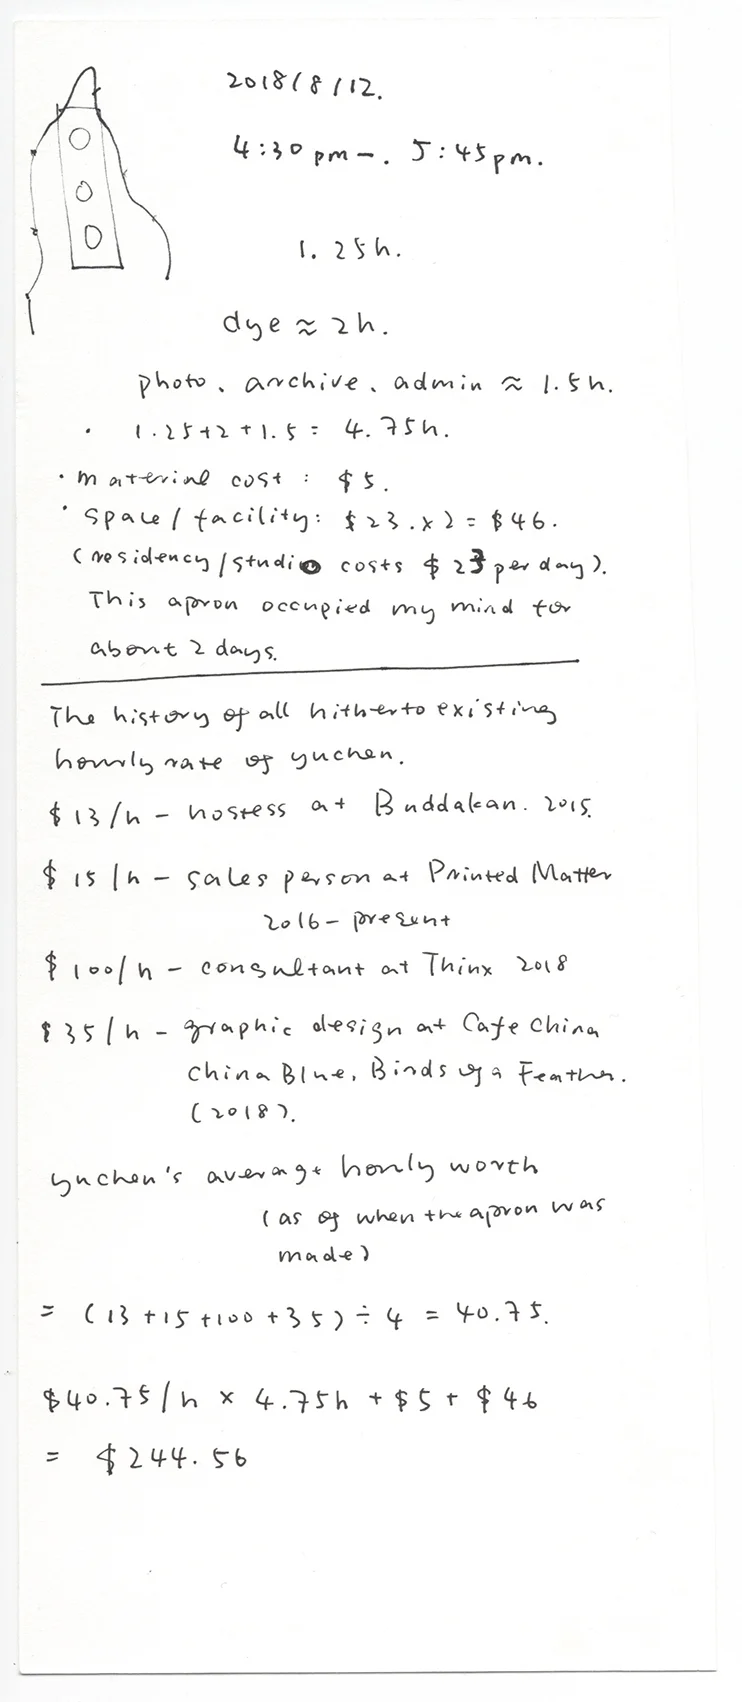 2018/8/12.
4:30pm-. 5:45pm.
1.25h.
dye ≈ 2h.
photo. archive. admin ≈ 1.5h.
· 1.25+2+1.5= 4.75h.
· material cost : $5.
· space/facility: $23.x2=$46.
(residency/studio costs $23 per day).
This apron occupied my mind for
about 2 days.
The history of all hitherto existing
hourly rate of yuchen.
$13/h - hostess at Buddakan. 2015.
$15/h - sales person at Printed Matter
2016- present
$100/h - consultant at Thinx 2018
$35/h - graphic design at Cafe China
China Blue, Birds of a Feather.
(2018).
yuchen's average honly worth
(as of when the apron was
made)
= (13+15+100+35)÷4 = 40.75.
$40.75/h x 4.75h + $5 + $46
= $244.56